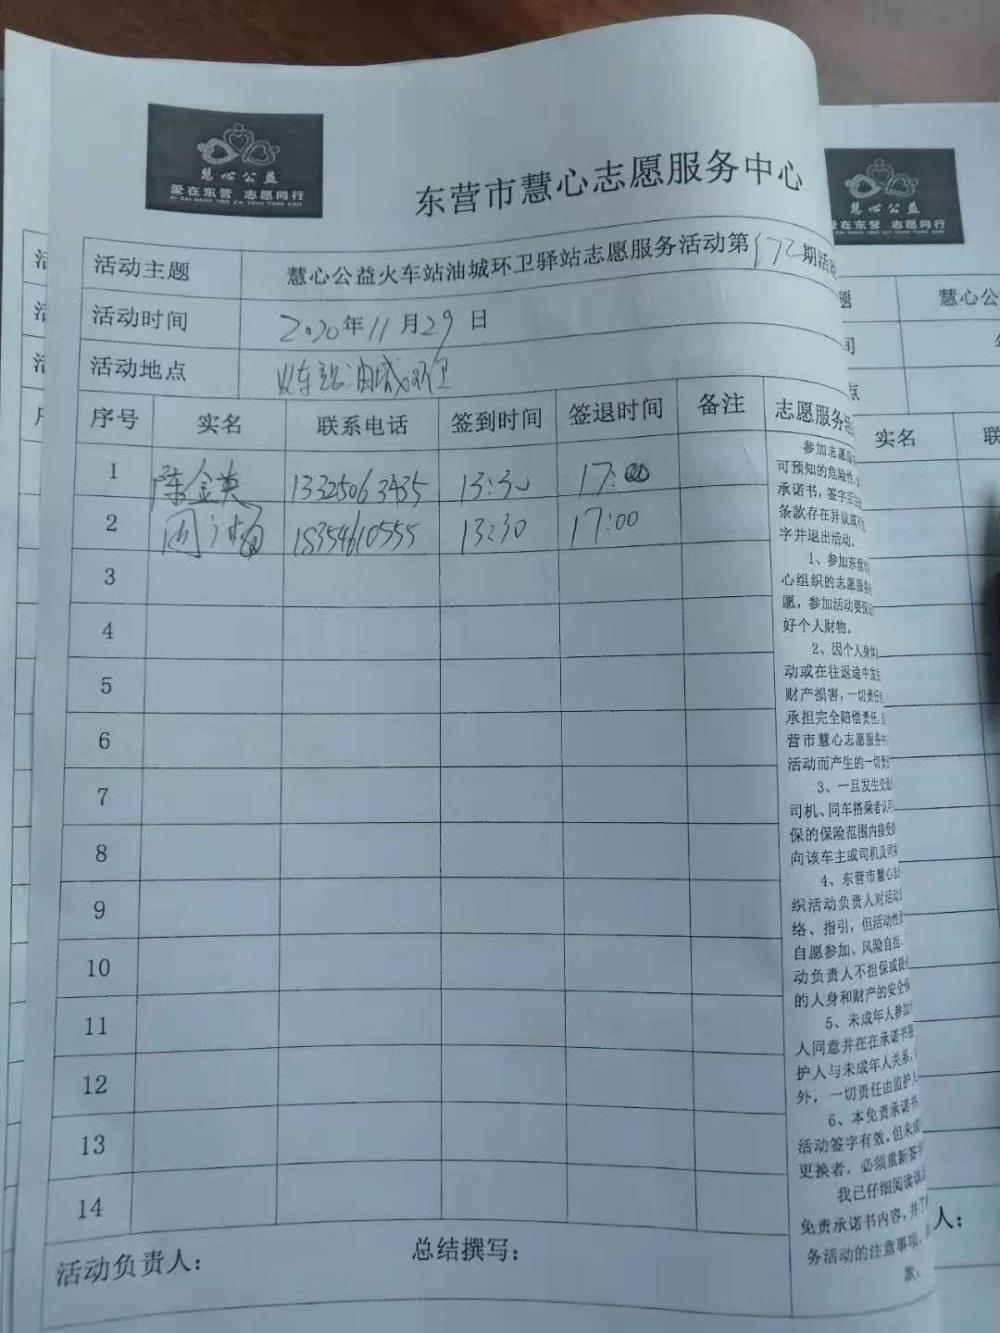 慧心公益
爱在东营 志愿同行
东营市慧心志愿服务中心
活动主题 慧心公益火车站油城环卫驿站志愿服务活动第172期活动
活动时间 2020年11月29日
活动地点 火车站油城环卫
序号 实名 联系电话 签到时间 签退时间 备注 志愿服务
1 陈金英 13325063435 13:30 17:00
2 周 18354610555 13:30 17:00
3
4
5
6
7
8
9
10
11
12
13
14
参加志愿服
可预知的危险性,
承诺书,签字后
条款存在异议或
字并退出活动。
1、参加东营
心组织的志愿服务
愿,参加活动要保
好个人财物。
2、因个人身体
动或在往返途中发
财产损害,一切责任
承担完全赔偿责任,
营市慧心志愿服务中
活动而产生的一切责
3、一旦发生交通
司机、同车搭乘者认
保的保险范围内接受
向该车主或司机及同
4、东营市慧心志
织活动负责人对活动
络、指引,但活动
自愿参加、风险自担.
动负责人不担保或
的人身和财产的安全
5、未成年人参加
人同意并在在承诺书
护人与未成年人关系,
外,一切责任由监护人
6、本免责承诺书
活动签字有效,但未
更换者,必须重新签
我已仔细阅读
免责承诺书内容,并
务活动的注意事项,
款。
活动负责人: 总结撰写:
慧心公益
爱在东营 志愿同行
题 慧心公
间
点
实名 联
人: